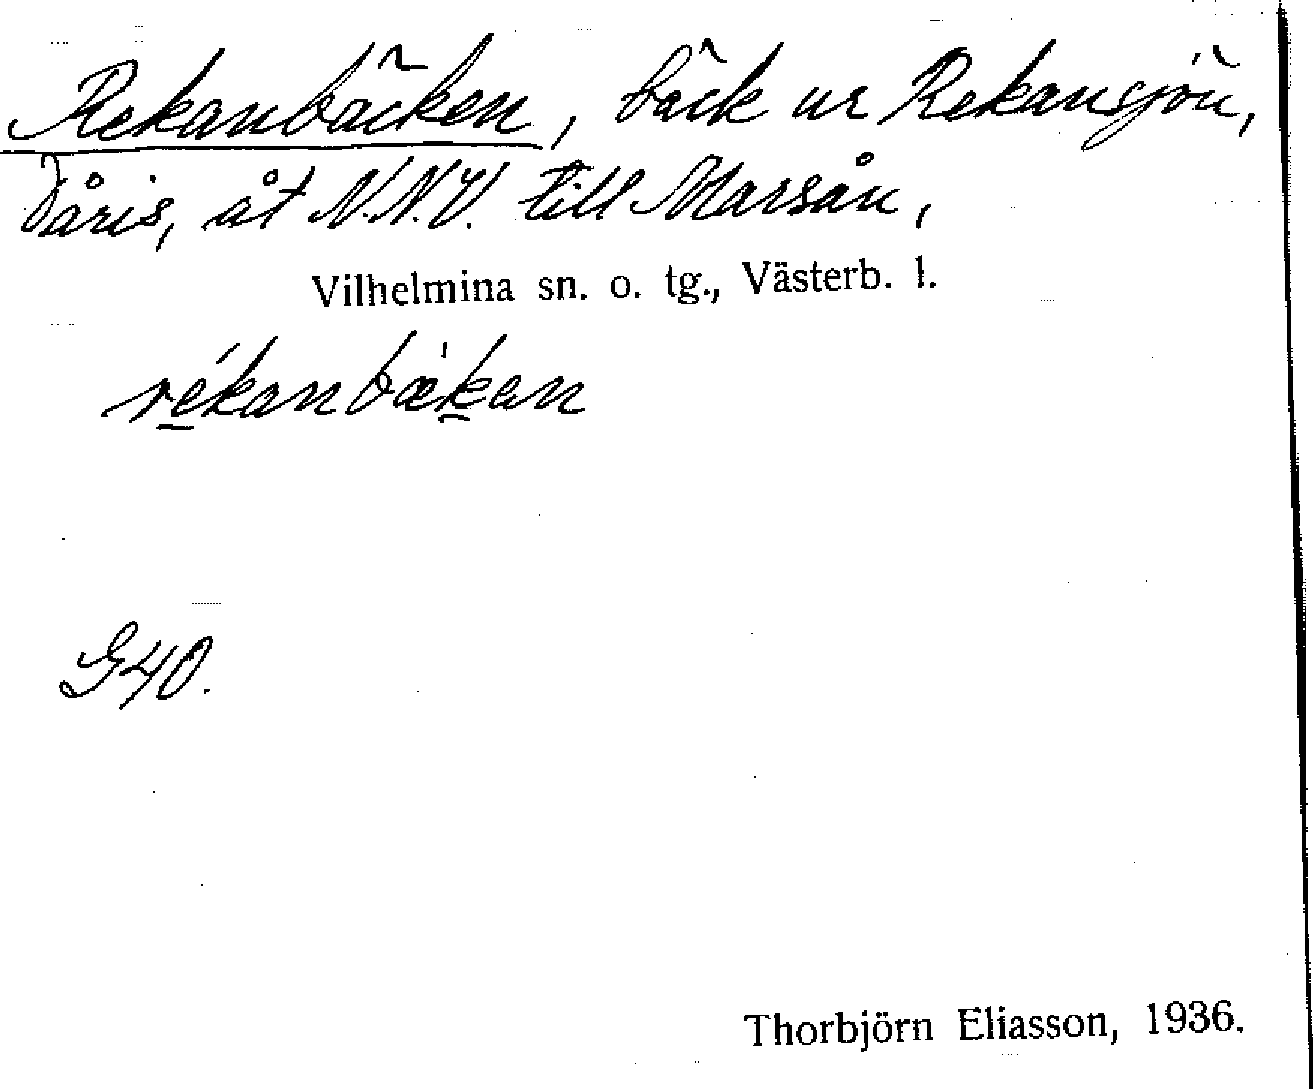 Rekanbäcken, bäck ur Rekansjön,
Dåris, åt N.N.V. till Marsån,
Vilhelmina sn. o. tg., Västerb. l.
rékanbæ̀kan
G40.
Thorbjörn Eliasson, 1936.